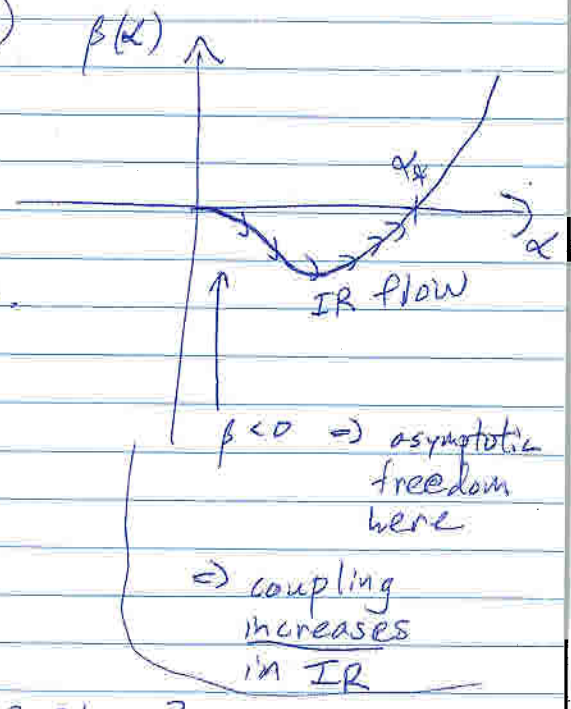 )
β(α)
α*
α
IR flow
β<0 ⇒ asymptotic
freedom
here
⇒ coupling
increases
in IR